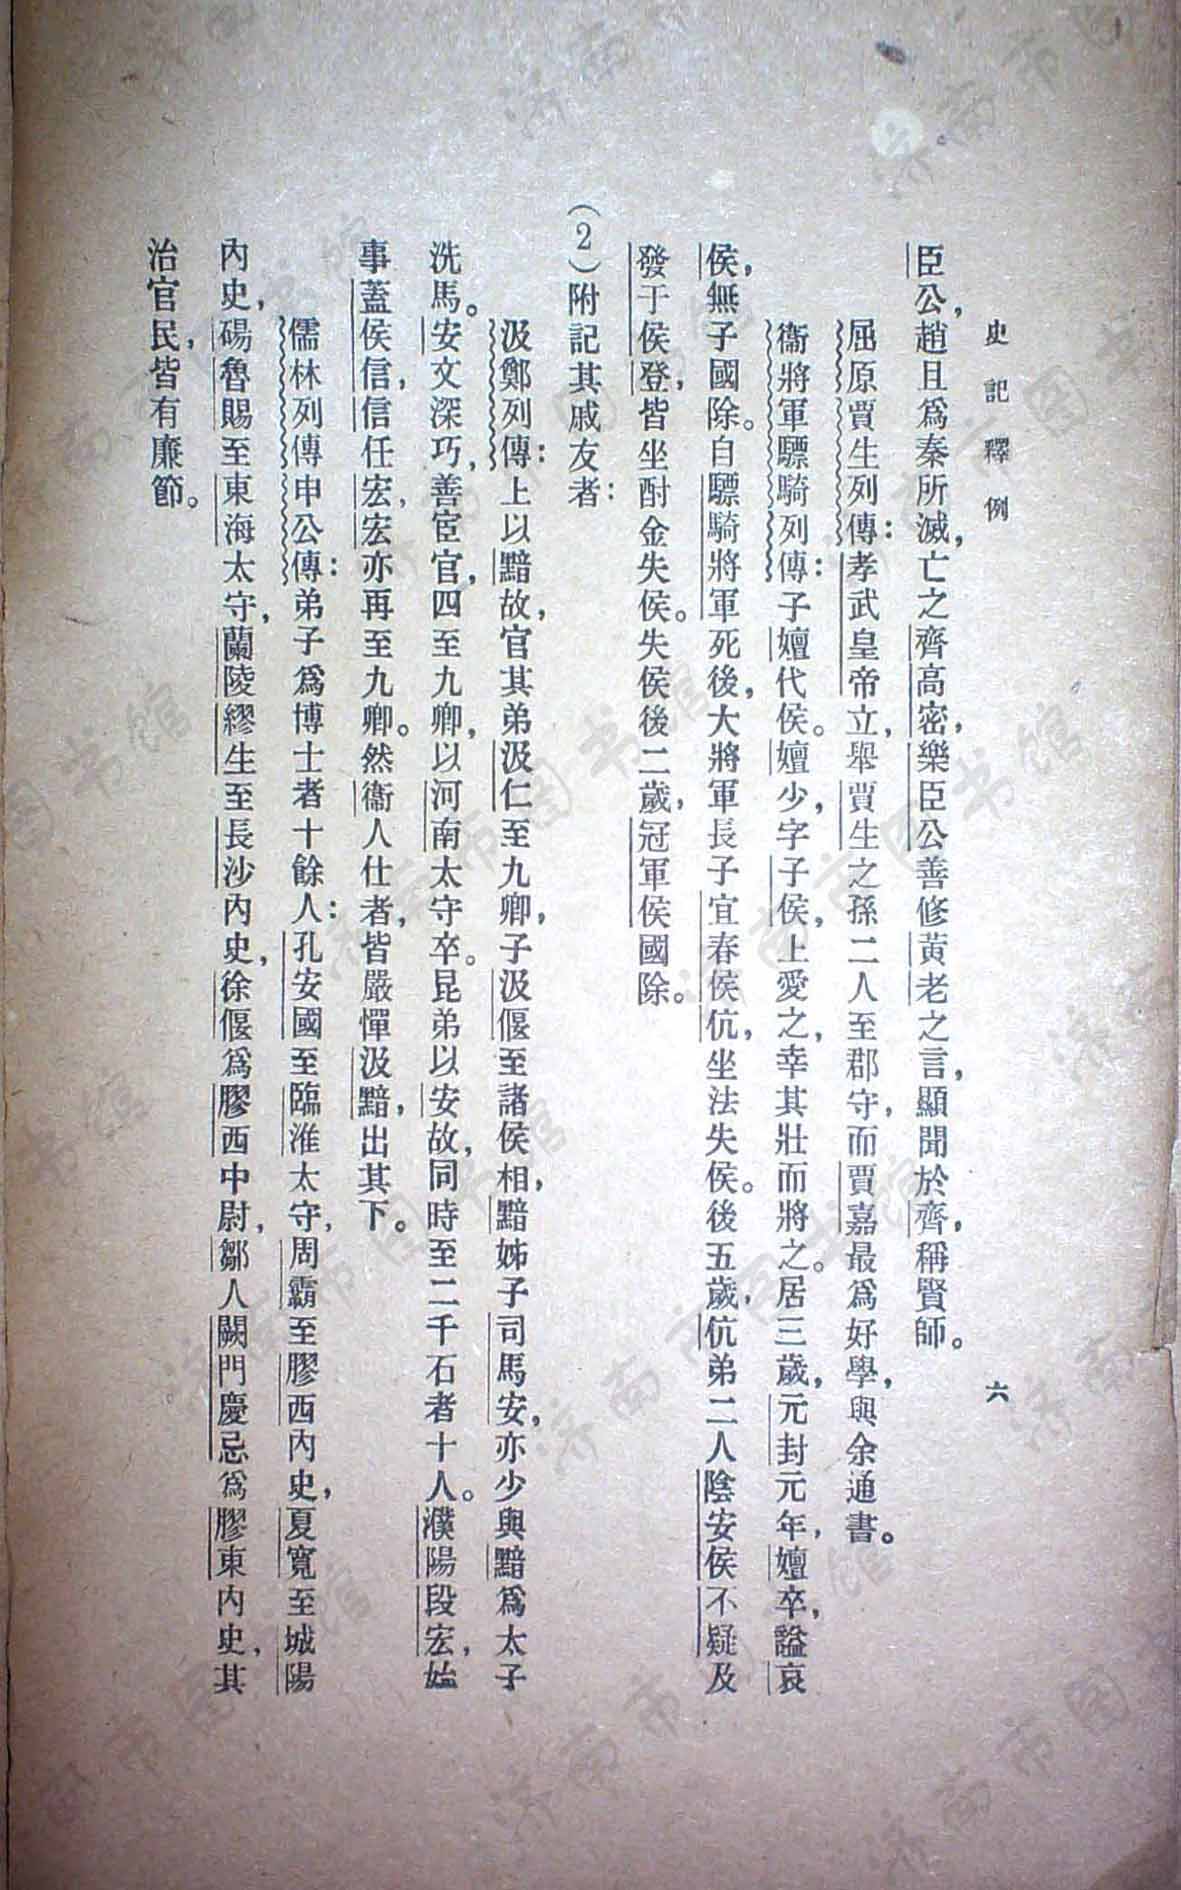 史記釋例 六
臣公,趙且爲秦所滅,亡之齊高密,樂臣公善修黃老之言,顯聞於齊,稱賢師。
屈原賈生列傳:孝武皇帝立,舉賈生之孫二人至郡守,而賈嘉最爲好學,與余通書。
衞將軍驃騎列傳:子嬗代侯。嬗少,字子侯,上愛之,幸其壯而將之。居三歲,元封元年,嬗卒,謚哀
侯,無子國除。自驃騎將軍死後,大將軍長子宜春侯伉,坐法失侯。後五歲,伉弟二人陰安侯不疑及
發于侯登,皆坐酎金失侯。失侯後二歲,冠軍侯國除。
(2)附記其戚友者:
汲鄭列傳:上以黯故,官其弟汲仁至九卿,子汲偃至諸侯相,黯姊子司馬安,亦少與黯爲太子
洗馬。安文深巧,善宦官,四至九卿,以河南太守卒。昆弟以安故,同時至二千石者十人。濮陽段宏,始
事蓋侯信,信任宏,宏亦再至九卿。然衞人仕者,皆嚴憚汲黯,出其下。
儒林列傳申公傳:弟子爲博士者十餘人:孔安國至臨淮太守,周霸至膠西內史,夏寬至城陽
內史,碭魯賜至東海太守,蘭陵繆生至長沙內史,徐偃爲膠西中尉,鄒人闕門慶忌爲膠東內史,其
治官民,皆有廉節。
濟南市图书馆